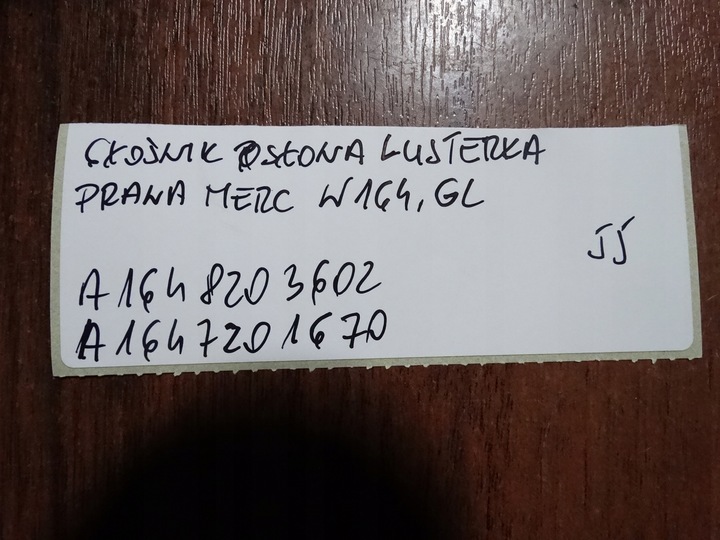 GŁOŚNIK OSŁONA LUSTERKA
PRAWA MERC W164, GL
JJ
A 164 820 3602
A 164 720 1670